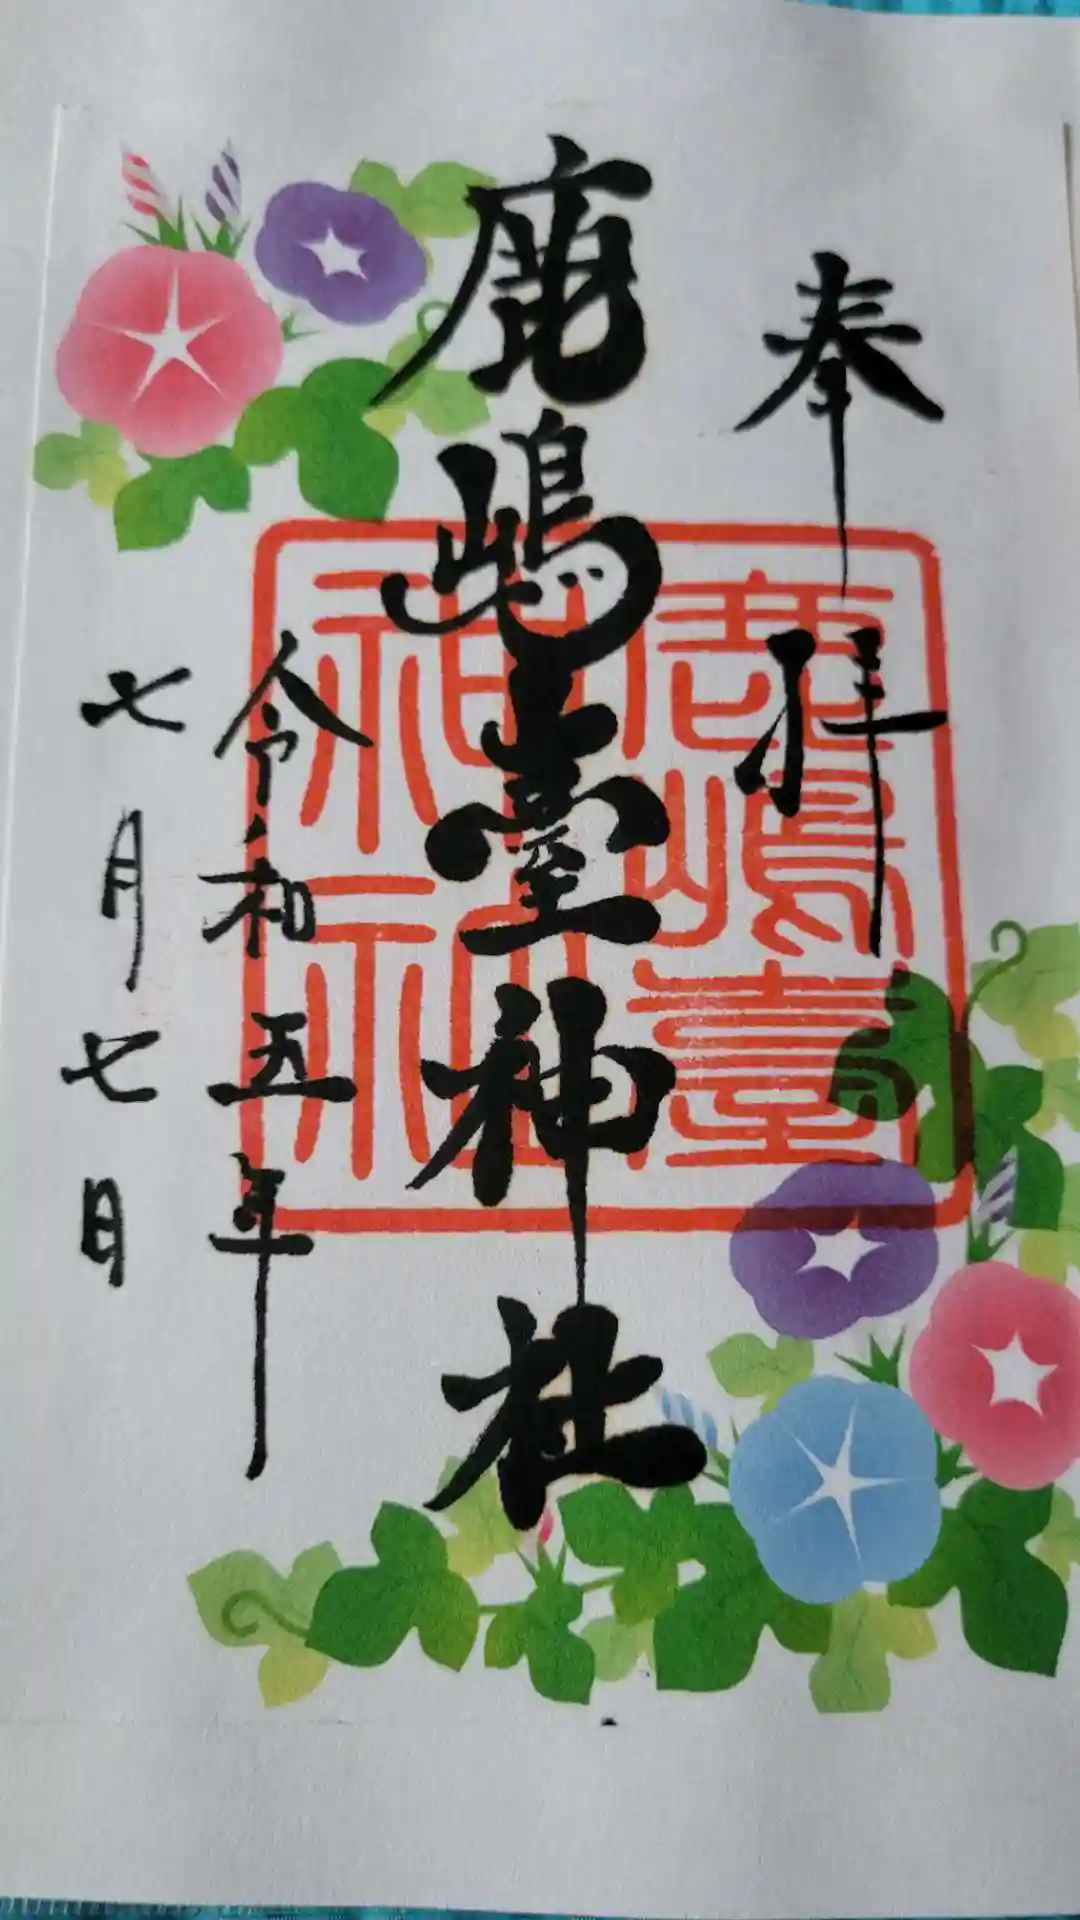 奉拝
鹿嶋臺神社
鹿嶋臺
神社
令和五年
七月七日